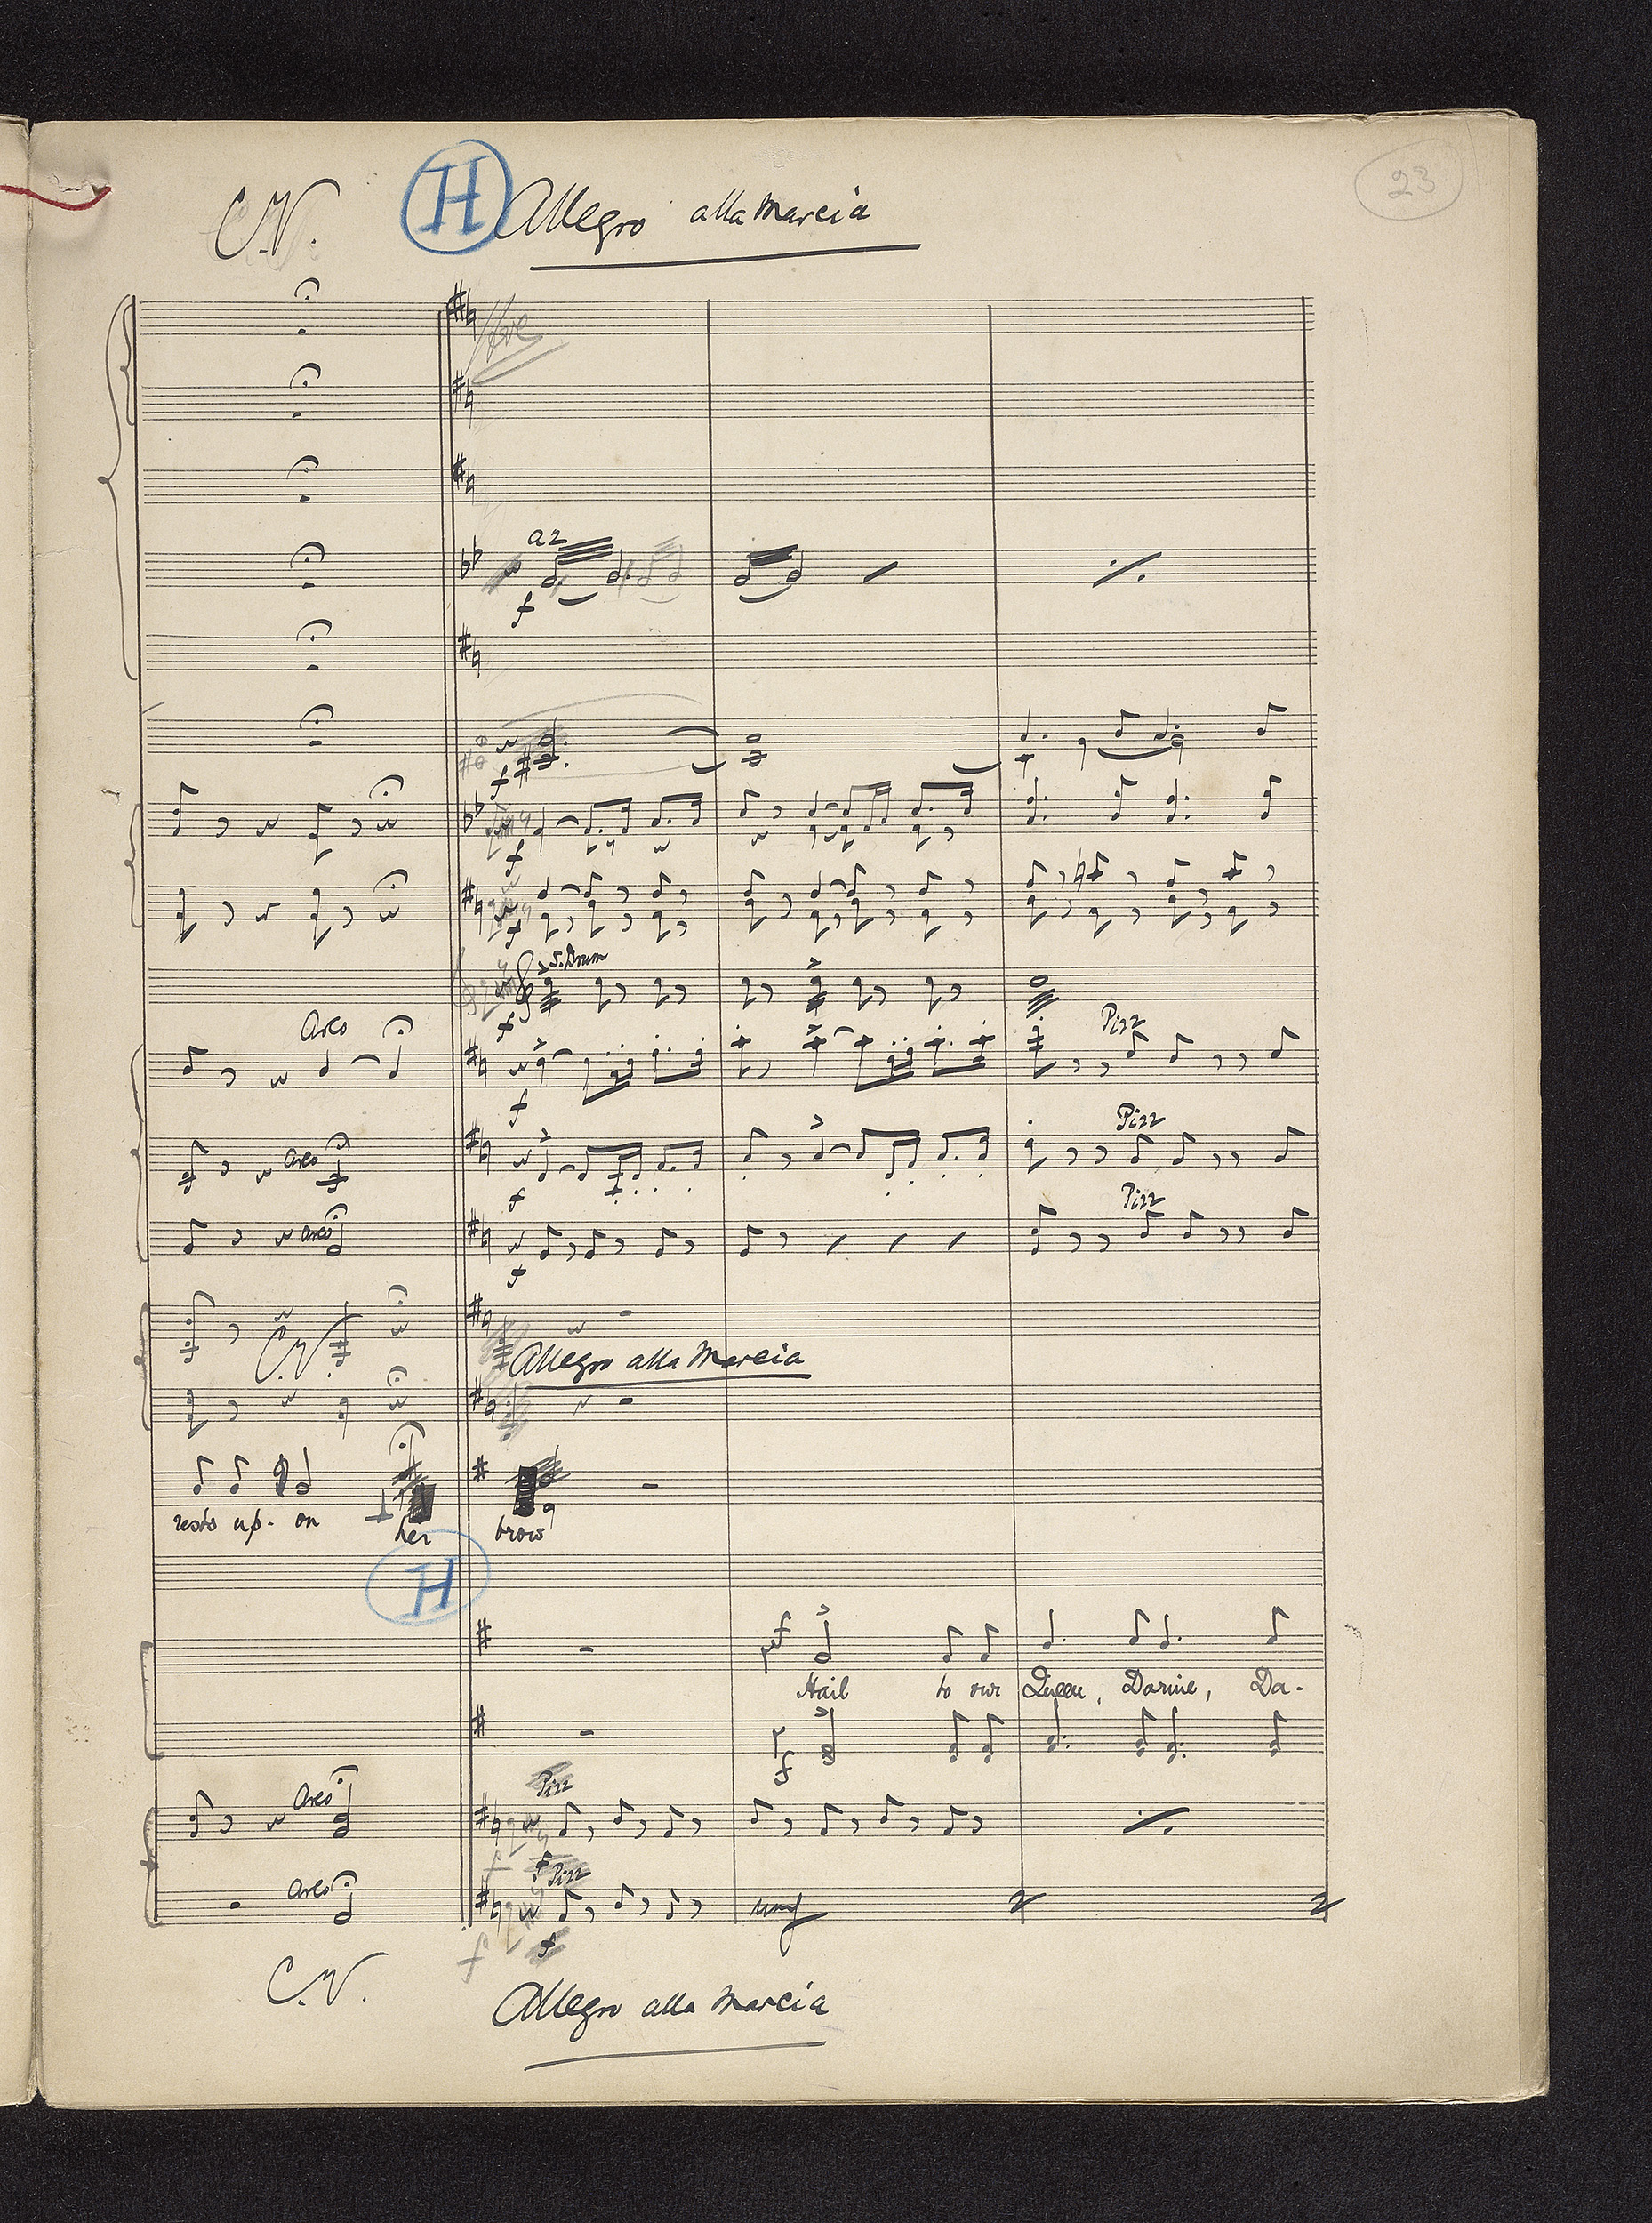 23
C.V. H Allegro alla Marcia
a2
f
f
f
f
S. Drum
f
Arco Pizz
f
Arco Pizz
f
Arco Pizz
f
C.V. Allegro alla Marcia
rests up- on her brow
H
mf
Hail to our Queen, Darine, Da-
f
Arco Pizz
f
Arco Pizz
f
C.V.
Allegro alla Marcia